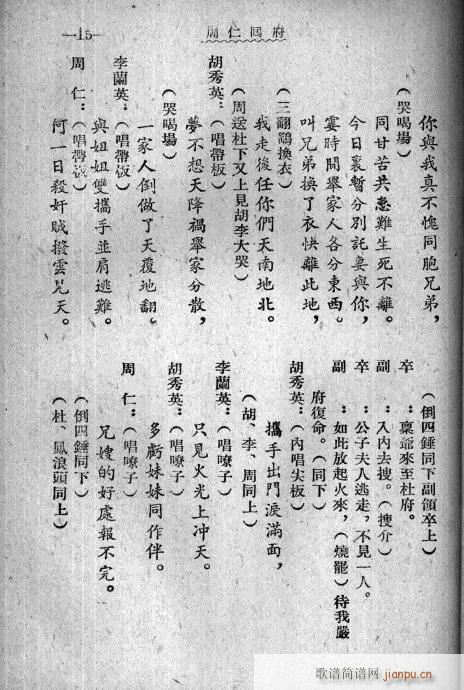 周仁囘府
—15—
你與我真不愧同胞兄弟，
（哭喝場）
同甘苦共患難生死不離。
今日裏暫分別託妻與你，
霎時間舉家人各分東西。
叫兄弟換了衣快離此地，
（三翻鷂換衣）
我走後任你們天南地北。
（周送杜下又上見胡李大哭）
胡秀英：（唱帶板）
夢不想天降禍舉家分散，
（哭喝場）
一家人倒做了天覆地翻。
李蘭英：（唱帶板）
與姐姐雙攜手並肩逃難。
周　仁：（唱帶板）
何一日殺奸賊撥雲見天。
（倒四錘同下副領卒上）
卒　：稟爺來至杜府。
副　：入內去搜。（搜介）
卒　：公子夫人逃走，不見一人。
副　：如此放起火來，（燒罷）待我嚴
府復命。（同下）
胡秀英：（內唱尖板）
攜手出門淚滿面，
（胡、李、周同上）
李蘭英：（唱嘹子）
只見火光上冲天。
胡秀英：（唱嘹子）
多虧妹妹同作伴。
周　仁：（唱嘹子）
兄嫂的好處報不完。
（倒四錘同下）
（杜、鳳浪頭同上）
歌谱简谱网
jianpu.cn